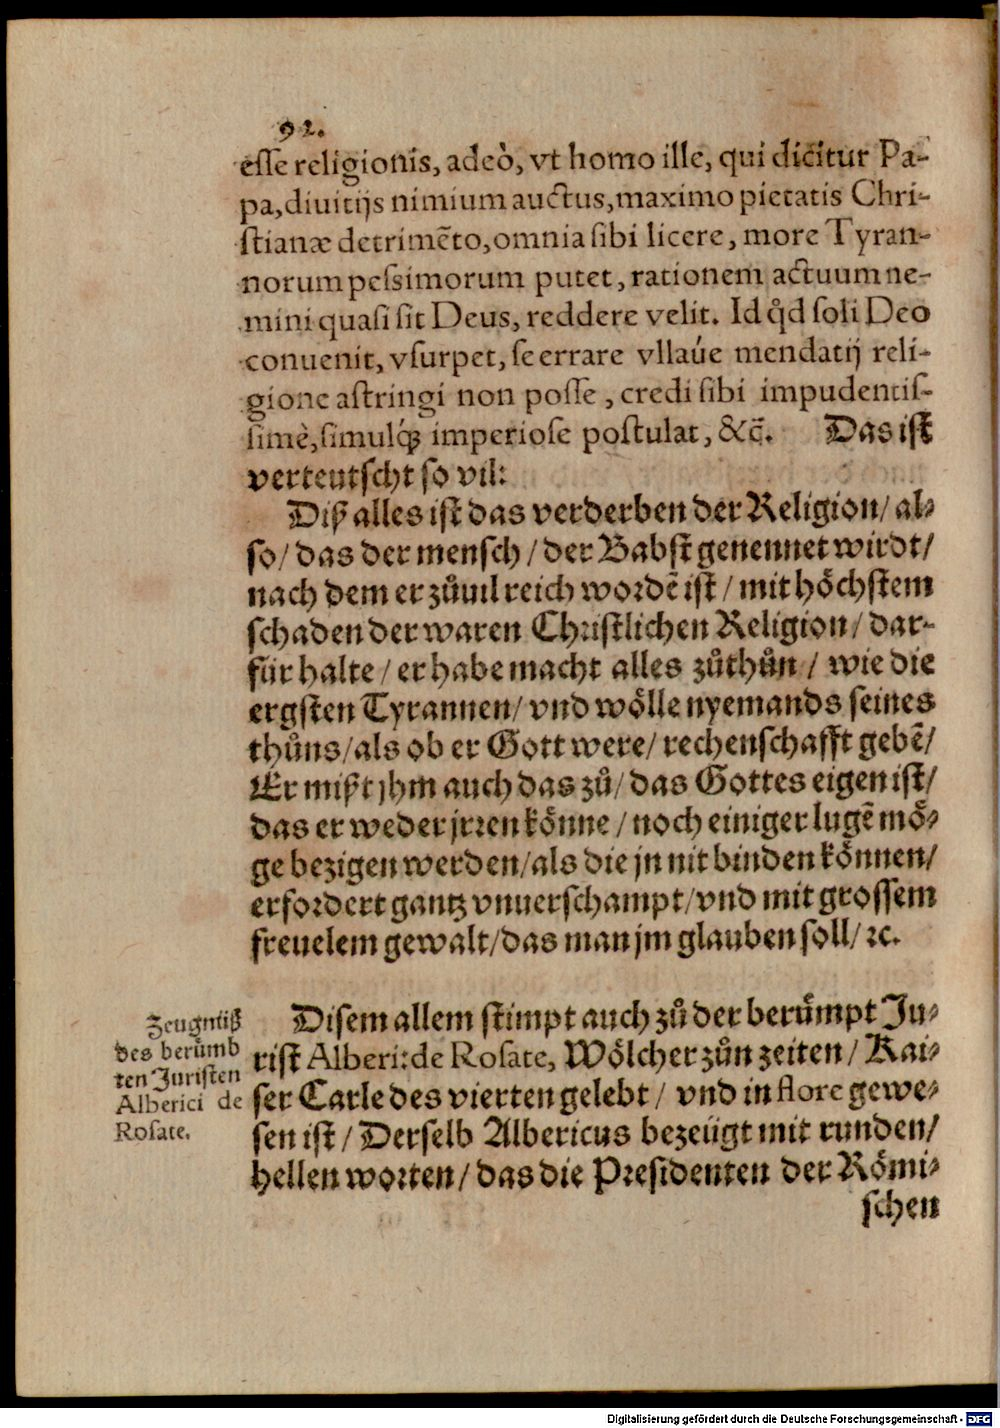 92.
esse religionis, adeò, vt homo ille, qui dicitur Pa-
pa, diuitijs nimium auctus, maximo pietatis Chri-
stianæ detrimẽto, omnia sibi licere, more Tyran-
norum pessimorum putet, rationem actuum ne-
mini quasi sit Deus, reddere velit. Id q̊d soli Deo
conuenit, vsurpet, se errare vllaúe mendatij reli-
gione astringi non posse, credi sibi impudentis-
simè, simulq́ꝫ imperiose postulat, &c̃. Das ist
verteutscht so vil:
Diß alles ist das verderben der Religion/ al-
so/ das der mensch/ der Babst genennet wirdt/
nach dem er zůuil reich wordẽ ist/ mit höchstem
schaden der waren Christlichen Religion/ dar-
für halte/ er habe macht alles zůthůn/ wie die
ergsten Tyrannen/ vnd wölle nyemands seines
thůns/ als ob er Gott were/ rechenschafft gebẽ/
Er mißt jhm auch das zů/ das Gottes eigen ist/
das er weder jrꝛen könne/ noch einiger lugẽ mö-
ge bezigen werden/ als die jn nit binden können/
erfordert gantz vnuerschampt/ vnd mit grossem
freuelem gewalt/ das man jm glauben soll/ ꝛc.
Disem allem stimpt auch zů der berůmpt Ju-
rist Alberi: de Rosate, Wölcher zůn zeiten/ Kai-
ser Carle des vierten gelebt/ vnd in flore gewe-
sen ist/ Derselb Albericus bezeügt mit runden/
hellen worten/ das die Presidenten der Römi-
schen
Zeugnüß
des berůmb
ten Juristen
Alberici de
Rosate.
Digitalisierung gefördert durch die Deutsche Forschungsgemeinschaft - DFG